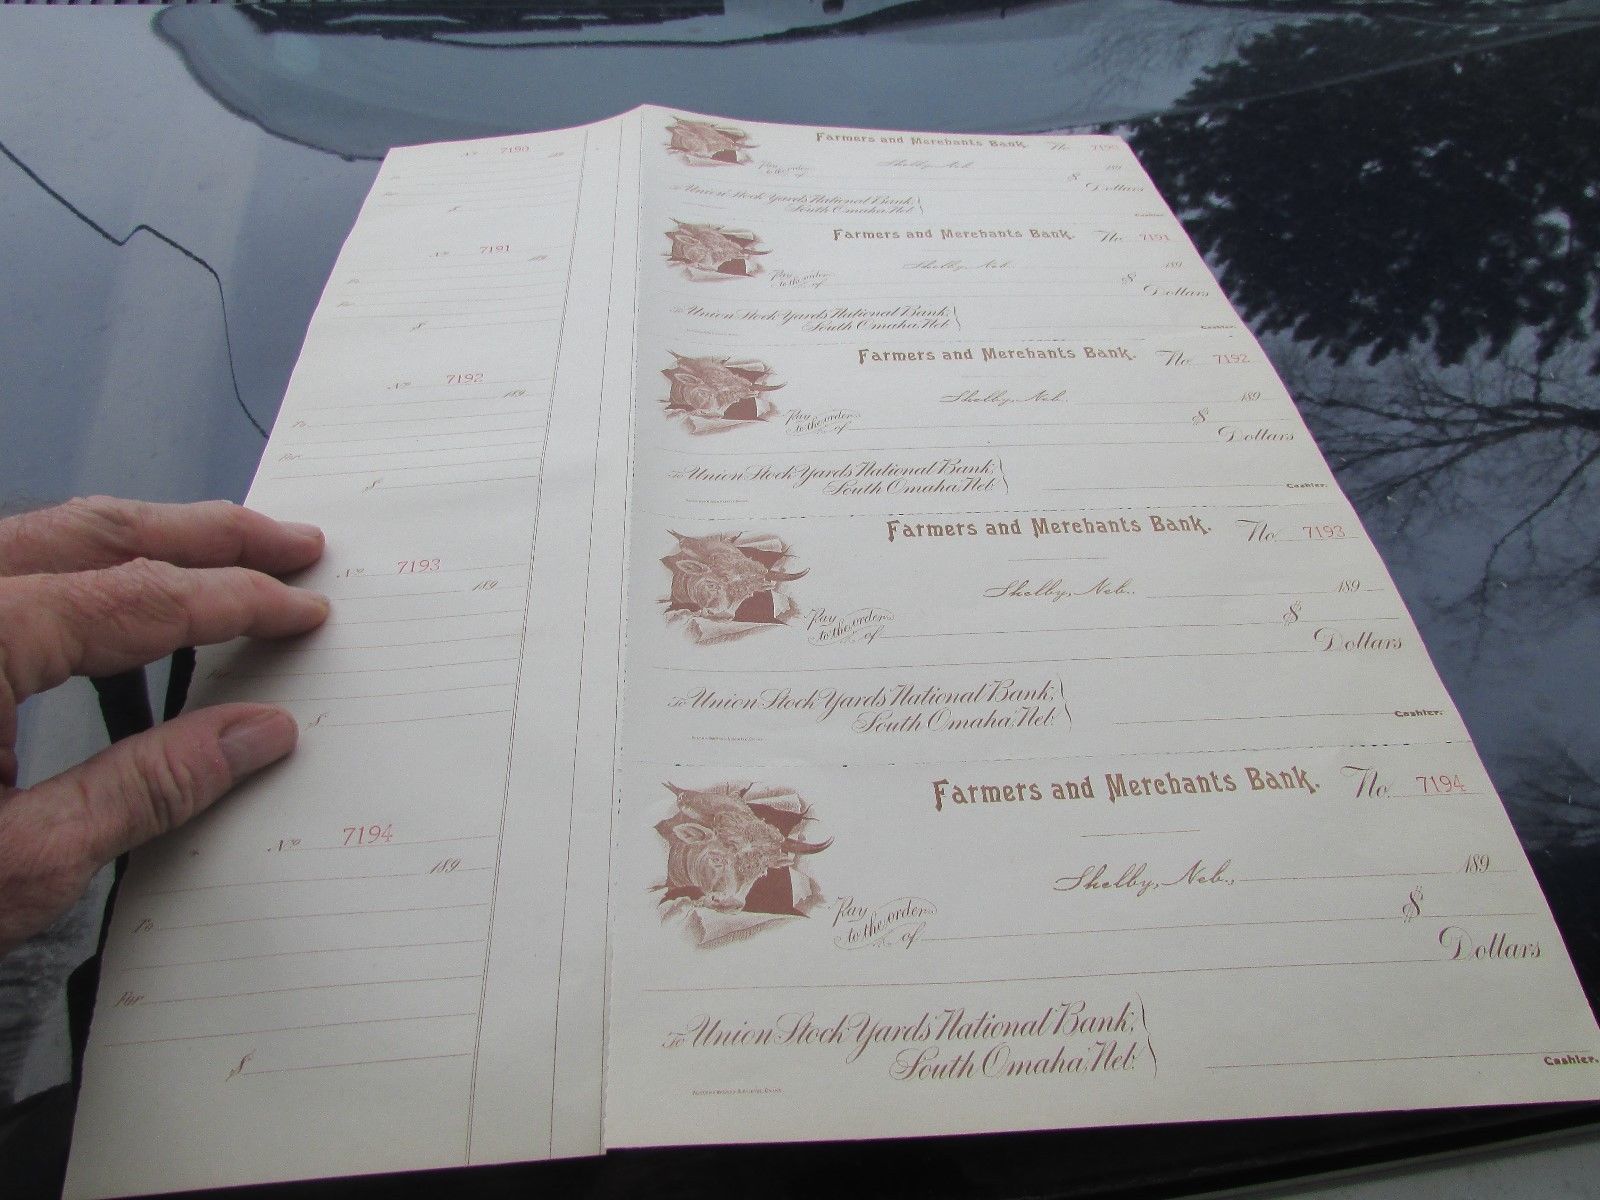 No 7190
189
To
For
$
Farmers and Merchants Bank. No. 7190
Shelby, Neb. 189
Pay to the order of $
Dollars
To Union Stock Yards National Bank,
South Omaha, Neb.
Cashier.
No 7191
189
To
For
$
Farmers and Merchants Bank. No. 7191
Shelby, Neb. 189
Pay to the order of $
Dollars
To Union Stock Yards National Bank,
South Omaha, Neb.
Cashier.
No 7192
189
To
For
$
Farmers and Merchants Bank. No. 7192
Shelby, Neb. 189
Pay to the order of $
Dollars
To Union Stock Yards National Bank,
South Omaha, Neb.
Cashier.
No 7193
189
For
$
Farmers and Merchants Bank. No. 7193
Shelby, Neb. 189
Pay to the order of $
Dollars
To Union Stock Yards National Bank,
South Omaha, Neb.
Cashier.
No 7194
189
To
For
$
Farmers and Merchants Bank. No. 7194
Shelby, Neb., 189
Pay to the order of $
Dollars
To Union Stock Yards National Bank,
South Omaha, Neb.
Cashier.